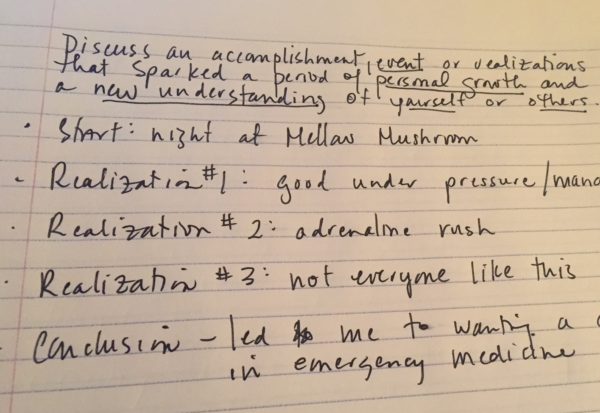 Discuss an accomplishment, event or realizations
that sparked a period of personal growth and
a new understanding of yourself or others.
• Start: night at Mellow Mushroom
- Realization #1: good under pressure/mana
• Realization # 2: adrenaline rush
• Realization #3: not everyone like this
- Conclusion - led me to wanting a
in emergency medicine